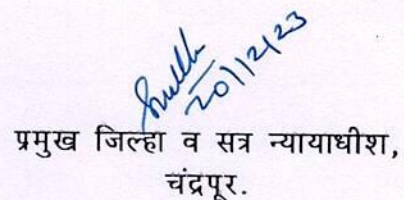 20/12/23
प्रमुख जिल्हा व सत्र न्यायाधीश,
चंद्रपूर.